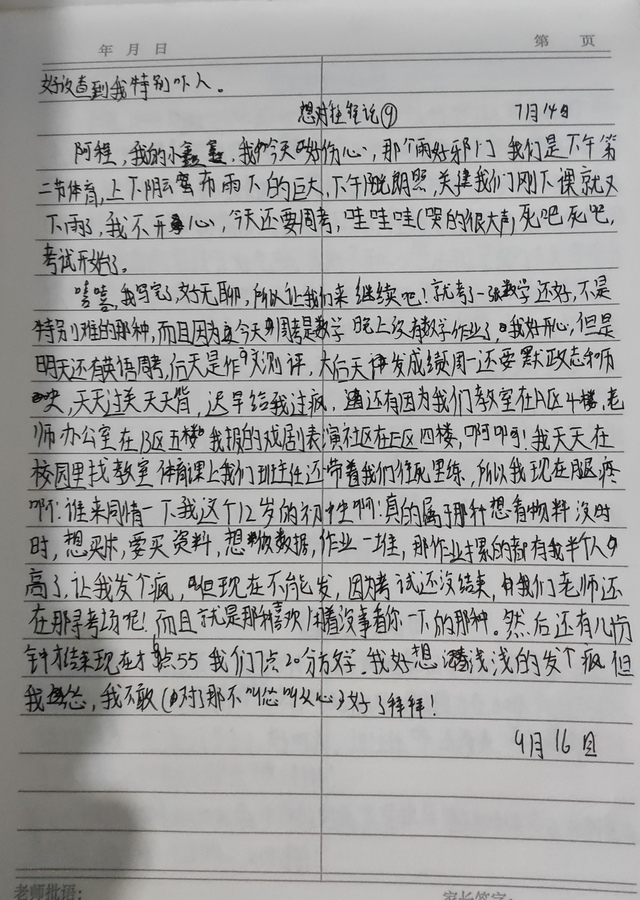 年 月 日
第 页
好没查到我特别吓人。
想对 说⑨ 7月14日
阿程,我的小鑫鑫,我们今天好伤心,那个雨好邪门 我们是下午第
二节体育,上下阴云密布雨下的巨大,下午 朗照,关键我们刚下课就又
下雨了,我不开心,今天还要周考,哇哇哇(哭的很大声)死吧死吧,
考试开始了。
嘻嘻,我写完了,好无聊,所以让我们来继续吧!就考了一张数学还好,不是
特别难的那种,而且因为今天周考是数学 晚上没有数学作业了,我好开心,但是
明天还有英语周考,后天是作 测评,大后天 发成绩周一还要默政志和
史,天天过关天天背,迟早给我过疯,还有因为我们教室在A区4楼,老
师办公室在B区五楼 我报的戏剧表演社区在E区四楼,啊啊!我天天在
校园里找教室 体育课上我们班主任还带着我们往死里练,所以我现在腿疼
啊!谁来同情一下我这个12岁的初 生啊!真的属于那种想看物料 没时
时,想买床,要买资料,想做数据,作业一堆,那作业摞的都有我半个人
高了,让我发个疯,但现在不能发,因为考试还没结束,我们老师还
在那寻考场呢!而且就是那种喜欢 着没事看你一下的那种。然后还有几
钟才结束现在才 点55 我们 点20分放学,我好想 浅浅的发个疯 但
我 怂,我不敢(对了那不叫怂叫 心)好了拜拜!
9月16日
老师批语:
家长签字: